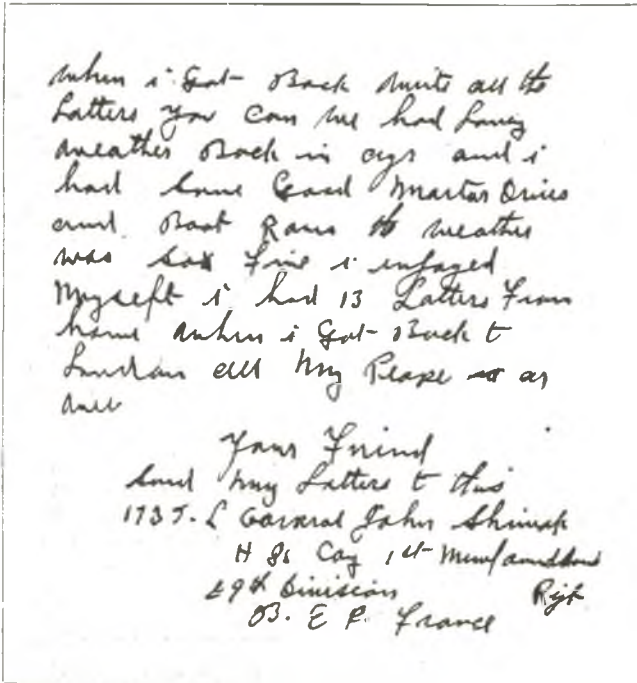 when i Got Back write all the
Latters you can we had Lovey
weather Back in ayr and i
had some Good Martar Drives
and Boat Rows the weather
was sox Fine i enfoyed
Myself i had 13 Latters From
home when i Got Back t
London all My Peape is as
well
Your Friend
send My Latters t this
1735. L Corporal John Shiwak
H Qs Coy 1st Newfoundland
Rigt
29th Division
B. E F. France